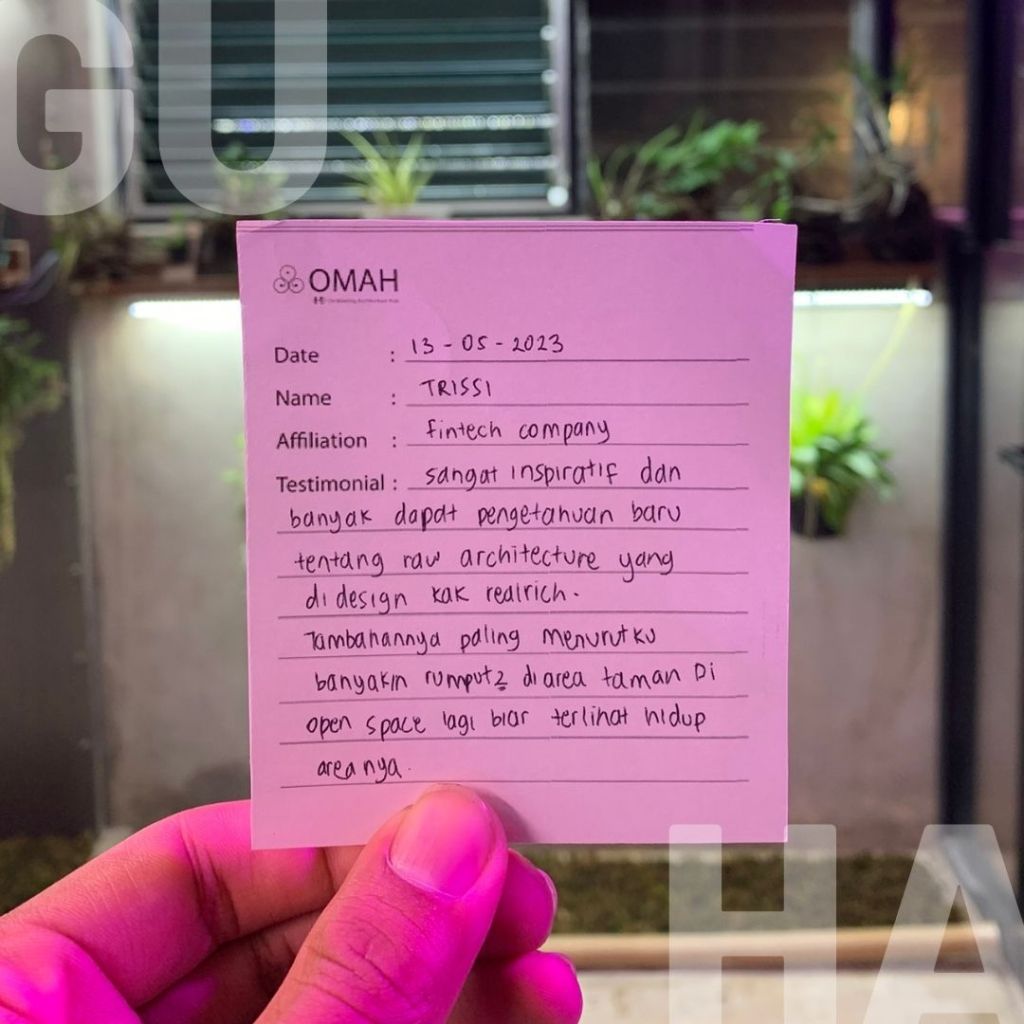 GU
OMAH
Date : 13 - 05 - 2023
Name : TRISSI
Affiliation : fintech company
Testimonial : sangat inspiratif dan
banyak dapat pengetahuan baru
tentang raw architecture yang
di design kak realrich.
Tambahannya paling menurutku
banyakin rumput2 di area taman Di
open space lagi biar terlihat hidup
area nya.
HA